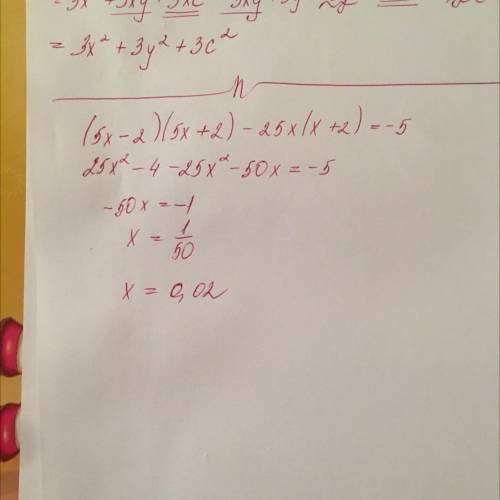 = 3x² + 3y² + 3c²
(5x - 2)(5x + 2) - 25x(x + 2) = -5
25x² - 4 - 25x² - 50x = -5
-50x = -1
x = 1/50
x = 0,02